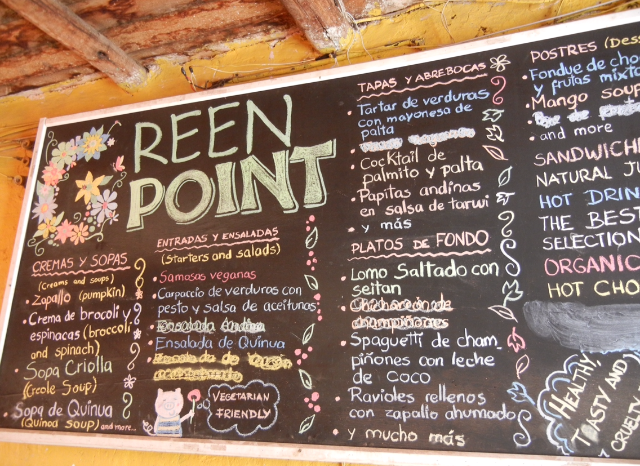 REEN
POINT
CREMAS Y SOPAS
(Creams and soups)
• Zapallo (pumpkin)
• Crema de brocoli y
espinacas (broccoli
and spinach)
• Sopa Criolla
(Creole Soup)
• Sopa de Quinua
(Quinoa soup) and more...
ENTRADAS Y ENSALADAS
(Starters and salads)
• Samosas veganas
• Carpaccio de verduras con
pesto y salsa de aceitunas
• Ensalada
• Ensalada de Quinua
VEGETARIAN
FRIENDLY
TAPAS Y ABREBOCAS
• Tartar de verduras
con mayonesa de
palta
• Cocktail de
palmito y palta
• Papitas andinas
en salsa de tarwi
y más
PLATOS DE FONDO
• Lomo Saltado con
seitan
• Chicharrón de
champiñones
• Spaguetti de cham
piñones con leche
de coco
• Ravioles rellenos
con zapallo ahumado
y mucho más
POSTRES (Des
• Fondue de cho
y frutas mixt
• Mango sou
• and more
SANDWICHE
NATURAL JU
HOT DRIN
THE BEST
SELECTION
ORGANIC
HOT CHO
HEALTHY,
TASTY AND
CRUEL